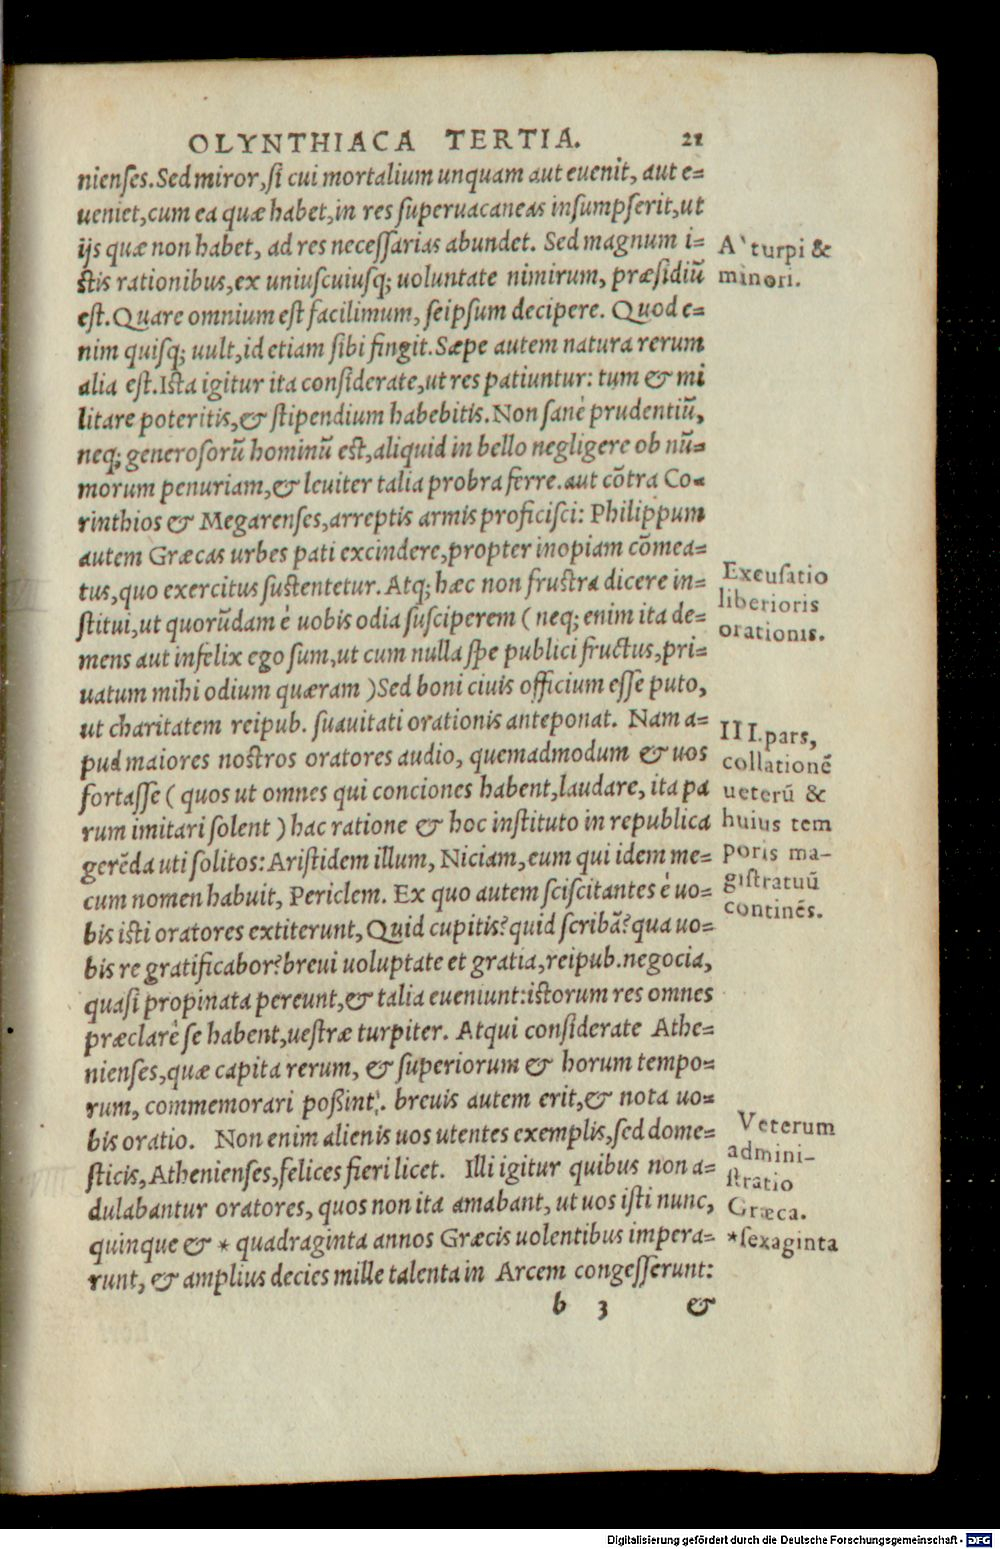 OLYNTHIACA TERTIA. 21
nienses. Sed miror, si cui mortalium unquam aut euenit, aut e=
ueniet, cum ea quæ habet, in res superuacaneas insumpserit, ut
ijs quæ non habet, ad res necessarias abundet. Sed magnum i=
stis rationibus, ex uniuscuiusq; uoluntate nimirum, præsidiũ
est. Quare omnium est facilimum, seipsum decipere. Quod e=
nim quisq; uult, id etiam sibi fingit. Sæpe autem natura rerum
alia est. Ista igitur ita considerate, ut res patiuntur: tum & mi
litare poteritis, & stipendium habebitis. Non sanè prudentiũ,
neq; generosorũ hominũ est, aliquid in bello negligere ob nũ=
morum penuriam, & leuiter talia probra ferre. aut cõtra Co=
rinthios & Megarenses, arreptis armis proficisci: Philippum
autem Græcas urbes pati excindere, propter inopiam cõmea=
tus, quo exercitus sustentetur. Atq; hæc non frustra dicere in=
stitui, ut quorũdam è uobis odia susciperem ( neq; enim ita de=
mens aut infelix ego sum, ut cum nulla spe publici fructus, pri=
uatum mihi odium quæram ) Sed boni ciuis officium esse puto,
ut charitatem reipub. suauitati orationis anteponat. Nam a=
pud maiores nostros oratores audio, quemadmodum & uos
fortasse ( quos ut omnes qui conciones habent, laudare, ita pa
rum imitari solent ) hac ratione & hoc instituto in republica
gerẽda uti solitos: Aristidem illum, Niciam, eum qui idem me=
cum nomen habuit, Periclem. Ex quo autem sciscitantes è uo=
bis isti oratores extiterunt, Quid cupitis? quid scribã? qua uo=
bis re gratificabor? breui uoluptate et gratia, reipub. negocia,
quasi propinata pereunt, & talia eueniunt: istorum res omnes
præclarè se habent, uestræ turpiter. Atqui considerate Athe=
nienses, quæ capita rerum, & superiorum & horum tempo=
rum, commemorari poßint. breuis autem erit, & nota uo=
bis oratio. Non enim alienis uos utentes exemplis, sed dome=
sticis, Athenienses, felices fieri licet. Illi igitur quibus non a=
dulabantur oratores, quos non ita amabant, ut uos isti nunc,
quinque & * quadraginta annos Græcis uolentibus impera=
runt, & amplius decies mille talenta in Arcem congesserunt:
b 3 &
A` turpi &
minori.
Excusatio
liberioris
orationis.
III. pars,
collationẽ
ueterũ &
huius tem
poris ma-
gistratuũ
continẽs.
Veterum
admini-
stratio
Græca.
*sexaginta
Digitalisierung gefördert durch die Deutsche Forschungsgemeinschaft - DFG